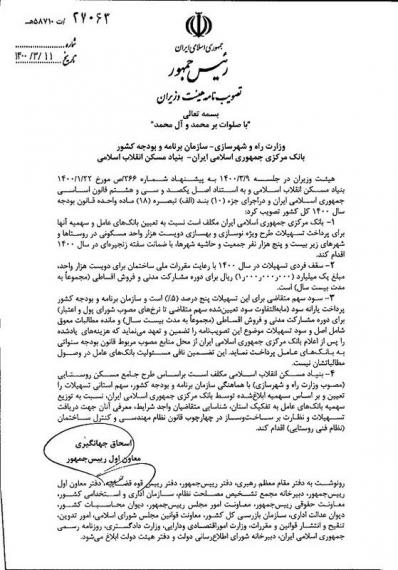 ۲۷۰۶۳ /ت ۵۸۷۱۰هـ
شماره
تاریخ ۱۴۰۰/۳/۱۱
جمهوری اسلامی ایران
رئیس جمهور
تصویب نامه هیئت وزیران
بسمه تعالی
"با صلوات بر محمد و آل محمد"
وزارت راه و شهرسازی - سازمان برنامه و بودجه کشور
بانک مرکزی جمهوری اسلامی ایران - بنیاد مسکن انقلاب اسلامی
هیئت وزیران در جلسه ۱۴۰۰/۳/۹ به پیشنهاد شماره ۲۶۶/ص مورخ ۱۴۰۰/۱/۲۲
بنیاد مسکن انقلاب اسلامی و به استناد اصل یکصد و سی و هشتم قانون اساسی
جمهوری اسلامی ایران و دراجرای جزء (۱۰) بند (الف) تبصره (۱۸) ماده واحده قانون بودجه
سال ۱۴۰۰ کل کشور تصویب کرد:
۱- بانک مرکزی جمهوری اسلامی ایران مکلف است نسبت به تعیین بانک‌های عامل و سهمیه آنها
برای پرداخت تسهیلات طرح ویژه نوسازی و بهسازی دویست هزار واحد مسکونی در روستاها و
شهرهای زیر بیست و پنج هزار نفر جمعیت و حاشیه شهرها، با ضمانت سفته زنجیره‌ای در سال ۱۴۰۰
اقدام کند.
۲- سقف فردی تسهیلات در سال ۱۴۰۰ با رعایت مقررات ملی ساختمان برای دویست هزار واحد،
مبلغ یک میلیارد (۱,۰۰۰,۰۰۰,۰۰۰) ریال برای دوره مشارکت مدنی و فروش اقساطی (مجموعاً به
مدت بیست سال) است.
۳- سود سهم متقاضی برای این تسهیلات پنج درصد (۵٪) است و سازمان برنامه و بودجه کشور
پرداخت یارانه سود (مابه‌التفاوت سود تعیین‌شده سهم متقاضی تا نرخ‌های مصوب شورای پول و اعتبار)
برای دوره مشارکت مدنی و فروش اقساطی (مجموعاً به مدت بیست سال) و مانده مطالبات معوق
شامل اصل و سود تسهیلات موضوع این تصویب‌نامه را تضمین و تعهد می‌نماید که هزینه‌های یادشده
را پس از اعلام بانک مرکزی جمهوری اسلامی ایران از محل منابع مصوب مربوط قانون بودجه سنواتی
به بانک‌های عامل پرداخت نماید. این تضمین نافی مسئولیت بانک‌های عامل در وصول
مطالباتشان نیست.
۴- بنیاد مسکن انقلاب اسلامی مکلف است براساس طرح جامع مسکن روستایی
(مصوب وزارت راه و شهرسازی) با هماهنگی سازمان برنامه و بودجه کشور، سهم استانی تسهیلات را
تعیین و بر اساس سهمیه ابلاغ‌شده توسط بانک مرکزی جمهوری اسلامی ایران، نسبت به توزیع
سهمیه بانک‌های عامل به تفکیک استان، شناسایی متقاضیان واجد شرایط، معرفی آنان جهت دریافت
تسهیلات و نظارت بر ساخت‌وساز در چهارچوب قانون نظام مهندسی و کنترل ساختمان
(نظام فنی روستایی) اقدام کند.
اسحاق جهانگیری
معاون اول رییس‌جمهور
رونوشت به دفتر مقام معظم رهبری، دفتر رییس‌جمهور، دفتر رییس قوه قضاییه، دفتر معاون اول
رییس‌جمهور، دبیرخانه مجمع تشخیص مصلحت نظام، سازمان اداری و استخدامی کشور،
معاونت حقوقی رییس‌جمهور، معاونت امور مجلس رییس‌جمهور، دیوان محاسبات کشور،
دیوان عدالت اداری، سازمان بازرسی کل کشور، معاونت قوانین مجلس شورای اسلامی، امور تدوین،
تنقیح و انتشار قوانین و مقررات، وزارت اموراقتصادی ودارایی، وزارت دادگستری، روزنامه رسمی
جمهوری اسلامی ایران، دبیرخانه شورای اطلاع‌رسانی دولت و دفتر هیئت دولت ابلاغ می‌شود.